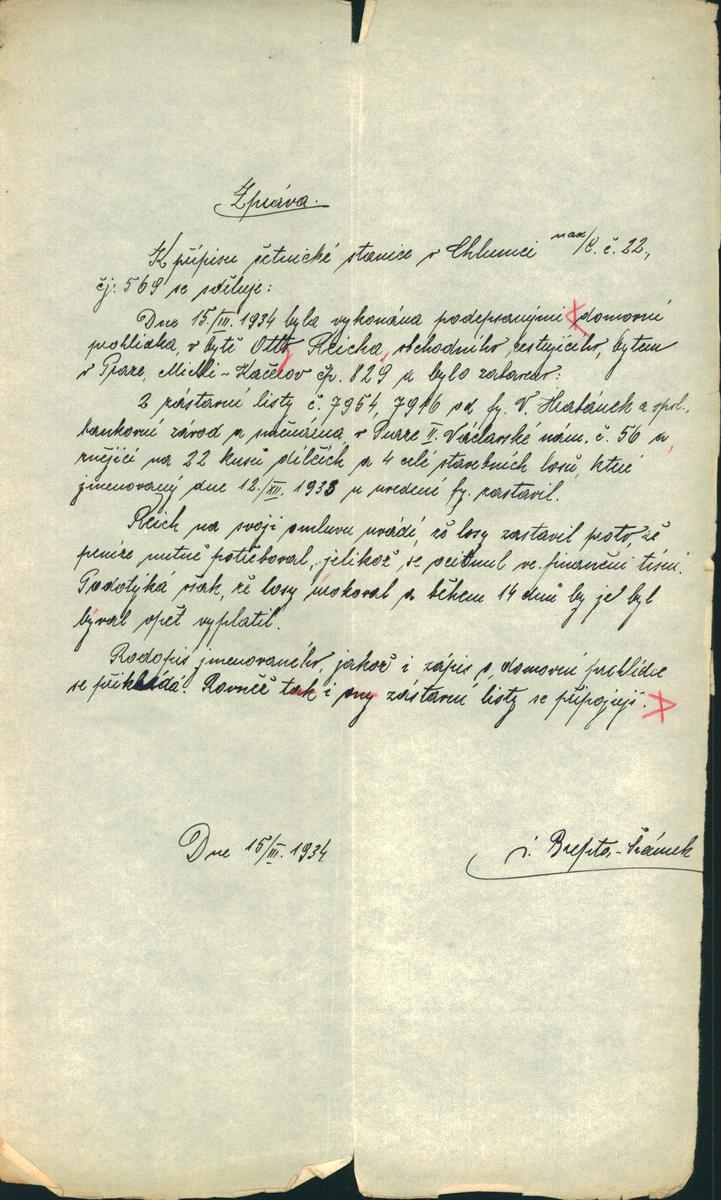 Zpráva.
K přípisu četnické stanice v Chlumci nad/C. č. 22,
čj. 569 se sděluje:
Dne 15./III. 1934 byla vykonána podepsanými domovní
prohlídka, v bytě Otto Reicha, obchodního, cestujícího, bytem
v Praze, Michli-Kačerov čp. 829 a bylo zabaveno:
2 zástavní listy č. 7954, 7916 od fy. V. Hatánek a spol.,
bankovní závod a směnárna, v Praze II. Václavské nám. č. 56 a
znějící na 22 kusů dílčích a 4 celé stavebních losů, které
jmenovaný dne 12./XII. 1933 u uvedené fy. zastavil.
Reich na svoji omluvu uvádí, že losy zastavil proto, že
peníze nutně potřeboval, jelikož se ocitnul ve finanční tísni.
Podotýká však, že losy blokoval a během 14 dnů by je byl
býval opět vyplatil.
Rodopis jmenovaného, jakož i zápis o domovní prohlídce
se přikládá. Rovněž tak i zástavní listy se připojují.
Dne 15/III. 1934